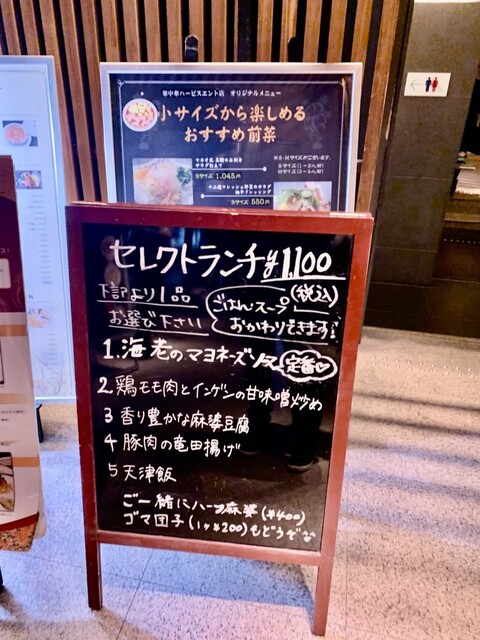 華中華ハービスエント店 オリジナルメニュー
小サイズから楽しめる
おすすめ前菜
Sサイズ 1,045円
Sサイズ 550円
セレクトランチ¥1,100
(税込)
下記より1品
お選び下さい
ごはんスープ
おかわりできます
1.海老のマヨネーズソース 定番♡
2.鶏モモ肉とインゲンの甘味噌炒め
3 香り豊かな麻婆豆腐
4 豚肉の竜田揚げ
5 天津飯
ご一緒にハーフ麻婆(¥400)
ゴマ団子(1ヶ¥200)もどうぞ